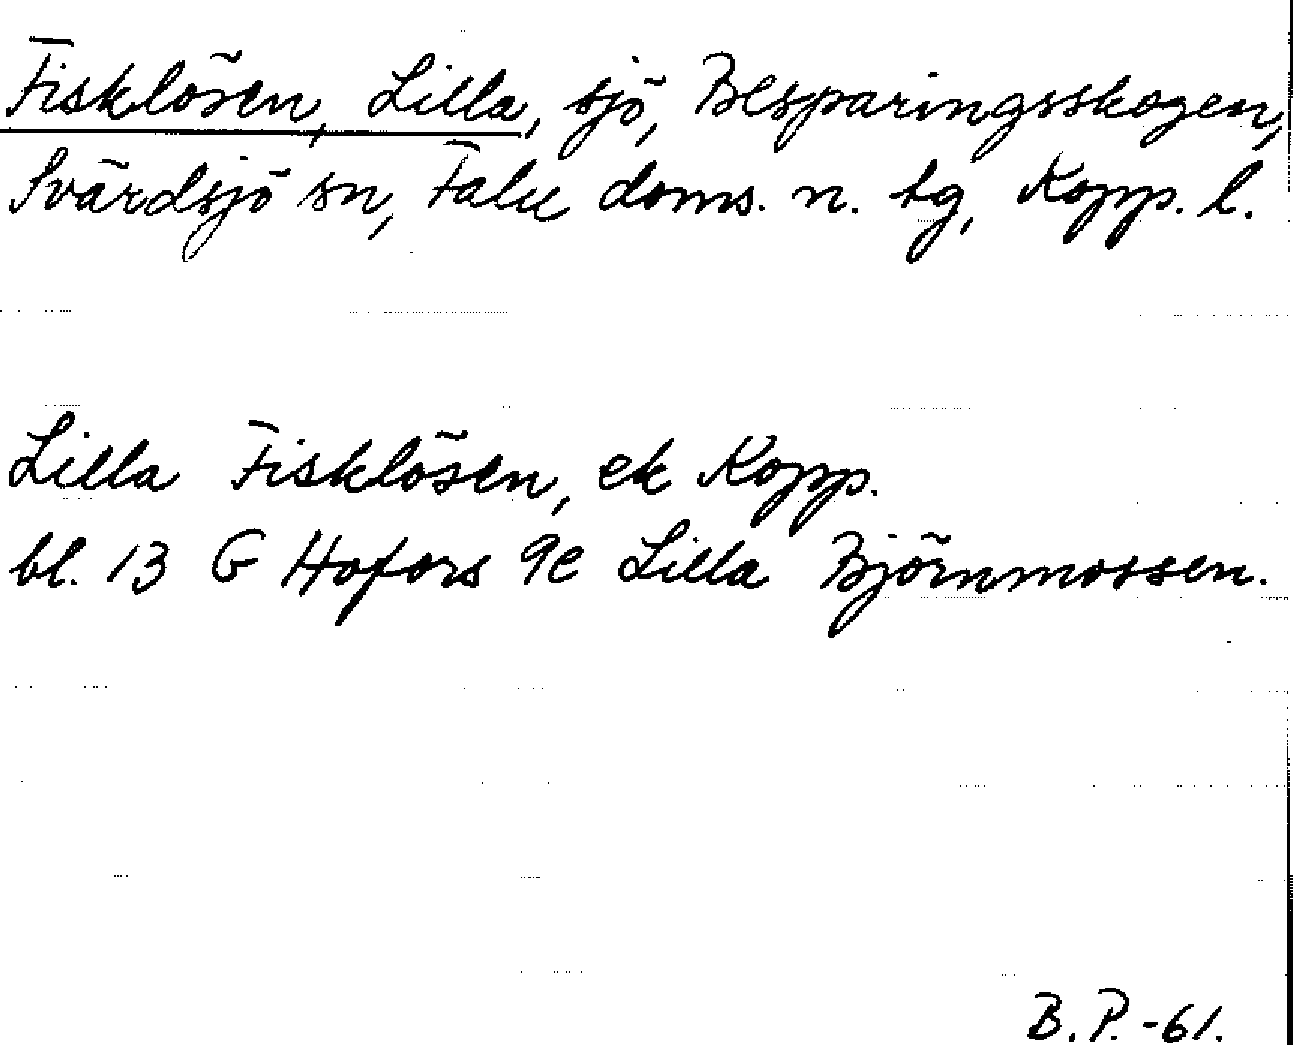 Fisklösen, Lilla, sjö, Besparingsskogen,
Svärdsjö sn, Falu doms. n. tg, Kopp. l.
Lilla Fisklösen, ek Kopp.
bl. 13 G Hofors 9e Lilla Björnmossen.
B.P.-61.